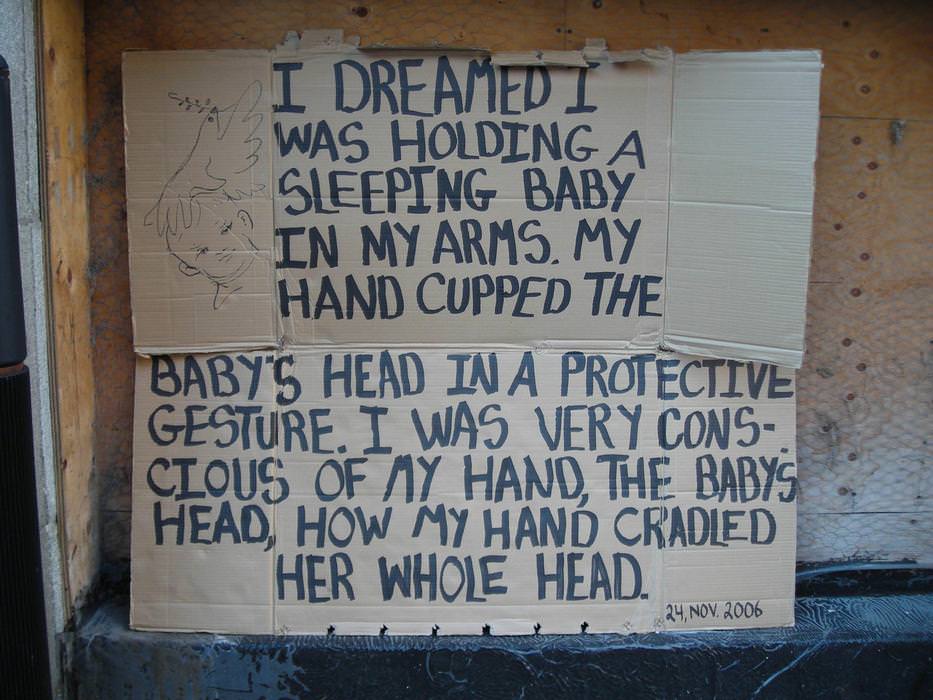 I DREAMED I
WAS HOLDING A
SLEEPING BABY
IN MY ARMS. MY
HAND CUPPED THE
BABY'S HEAD IN A PROTECTIVE
GESTURE. I WAS VERY CONS-
CIOUS OF MY HAND, THE BABY'S
HEAD, HOW MY HAND CRADLED
HER WHOLE HEAD.
24, NOV. 2006